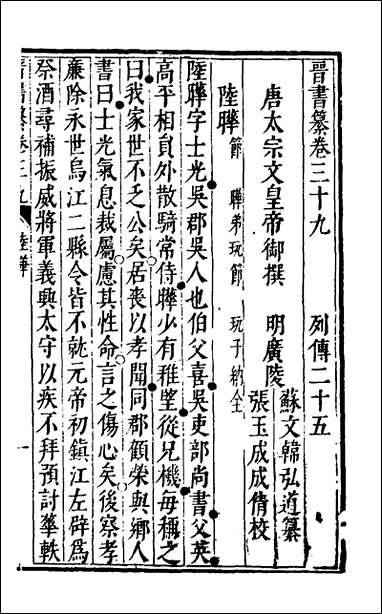 晉書纂卷三十九 列傳二十五
唐太宗文皇帝御撰 明廣陵 蘇文韓弘道纂
張玉成成倩校
陸曄 節 曄弟玩 節 玩子納 全
陸曄字士光吳郡吳人也伯父喜吳吏部尚書父英
高平相員外散騎常侍曄少有雅望從兄機每稱之
曰我家世不乏公矣居喪以孝聞同郡顧榮與鄉人
書曰士光氣息裁屬慮其性命言之傷心矣後察孝
廉除永世烏江二縣令皆不就元帝初鎮江左辟爲
祭酒尋補振威將軍義興太守以疾不拜預討華軼
晉書纂卷三九 陸曄 一